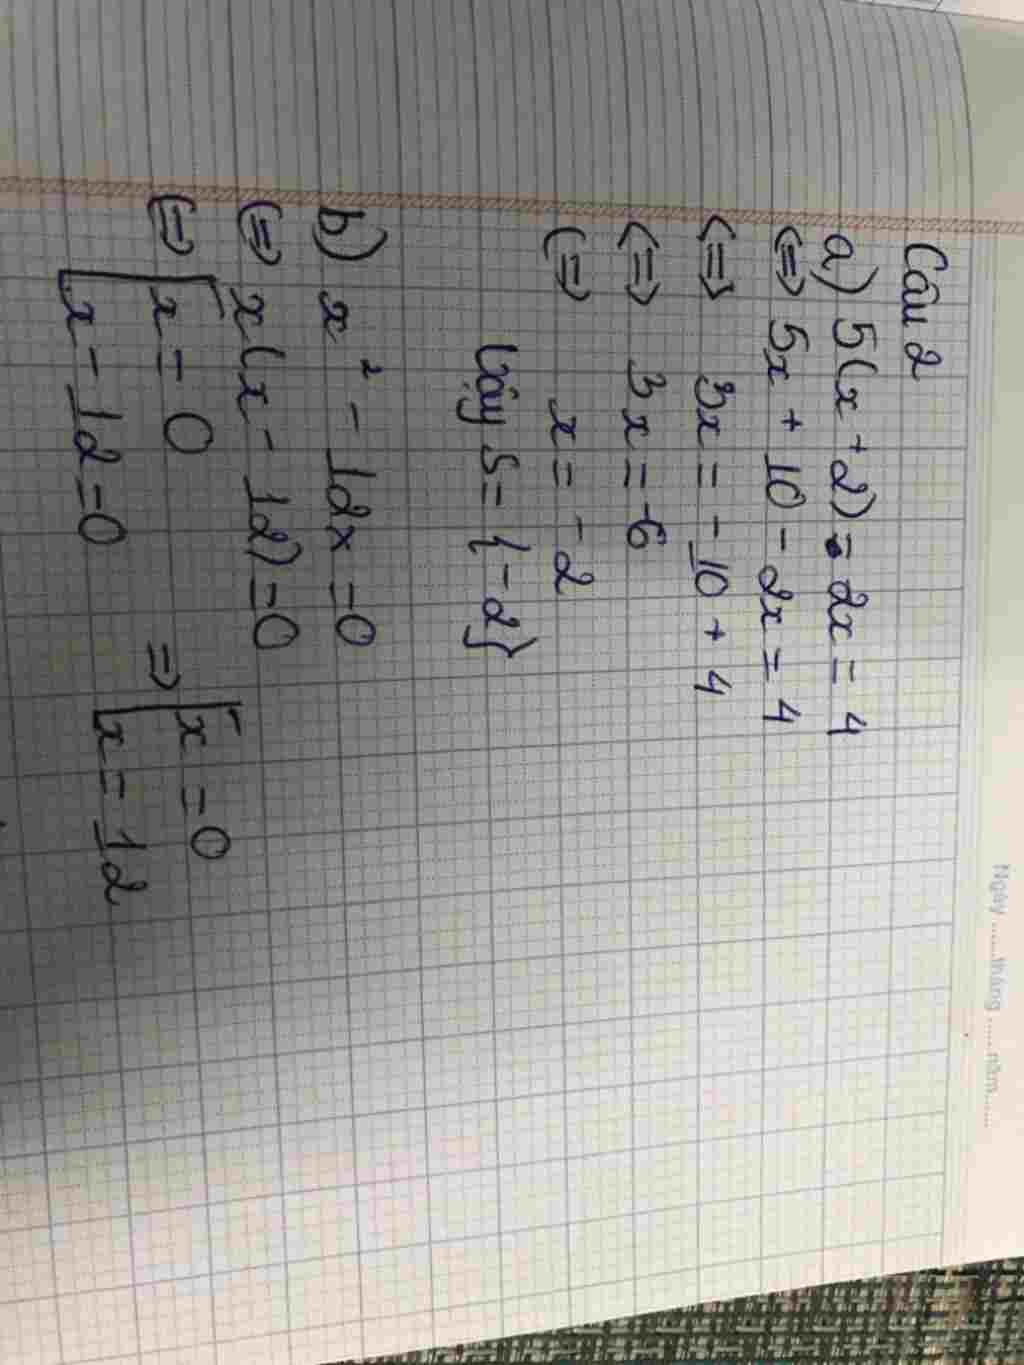 Câu 2
a) 5(x + 2) - 2x = 4
<=> 5x + 10 - 2x = 4
<=> 3x = -10 + 4
<=> 3x = -6
<=> x = -2
Vậy S = {-2}
b) x² - 12x = 0
<=> x(x - 12) = 0
<=> [x = 0 => [x = 0
[x - 12 = 0 [x = 12
Ngày ......tháng ......năm......